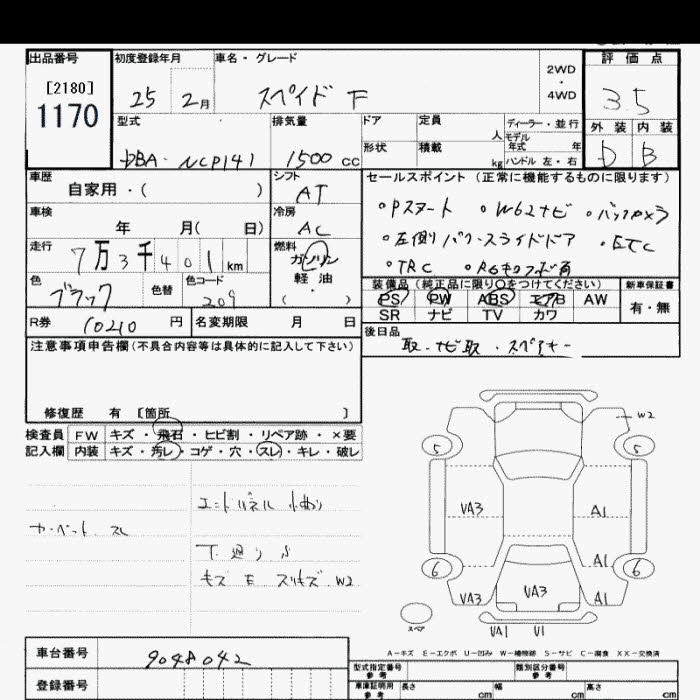 出品番号 初度登録年月 車名・グレード 評価点
[2180]
1170
25 2月 スペイド F
2WD
・
4WD
3.5
型式 排気量 ドア 定員 人 ディーラー・並行 外装 内装
モデル年式 年
DBA-NCP141 1500 cc 形状 積載 kg ハンドル 左・右 D B
車歴 シフト セールスポイント (正常に機能するものに限ります)
自家用・( ) AT
車検 冷房
年 月( 日) AC
・Pスタート ・W62ナビ ・バックカメラ
走行 燃料
7万3千401km ガソリン
軽油
・( )
・左側パワースライドドア ・ETC
・TRC
色 色替 色コード
ブラック 209
装備品 (純正品に限り○をつけてください) 新車保証書
PS PW ABS エアB AW 有・無
SR ナビ TV カワ
R券 10210 円 名変期限 月 日
後日品
取・ナビ取・スペアキー
注意事項申告欄(不具合内容等は具体的に記入して下さい)
修復歴 有 [箇所 ]
検査員 FW キズ・飛石・ヒビ割・リペア跡・×要
記入欄 内装 キズ・汚レ・コゲ・穴・スレ・キレ・破レ
カーペット スレ
キズ E スリキズ W2
W2
5 5
VA3 A1
A1
6 6
VA3 VA3 A1
スペア
VA1 U1
A-キズ E-エクボ U-凹み W-補修跡 S-サビ C-腐食 XX-交換済
車台番号 9048042
登録番号
型式指定番号 参考 類別区分番号 参考
車庫証明用 参考 長さ cm 幅 cm 高さ cm